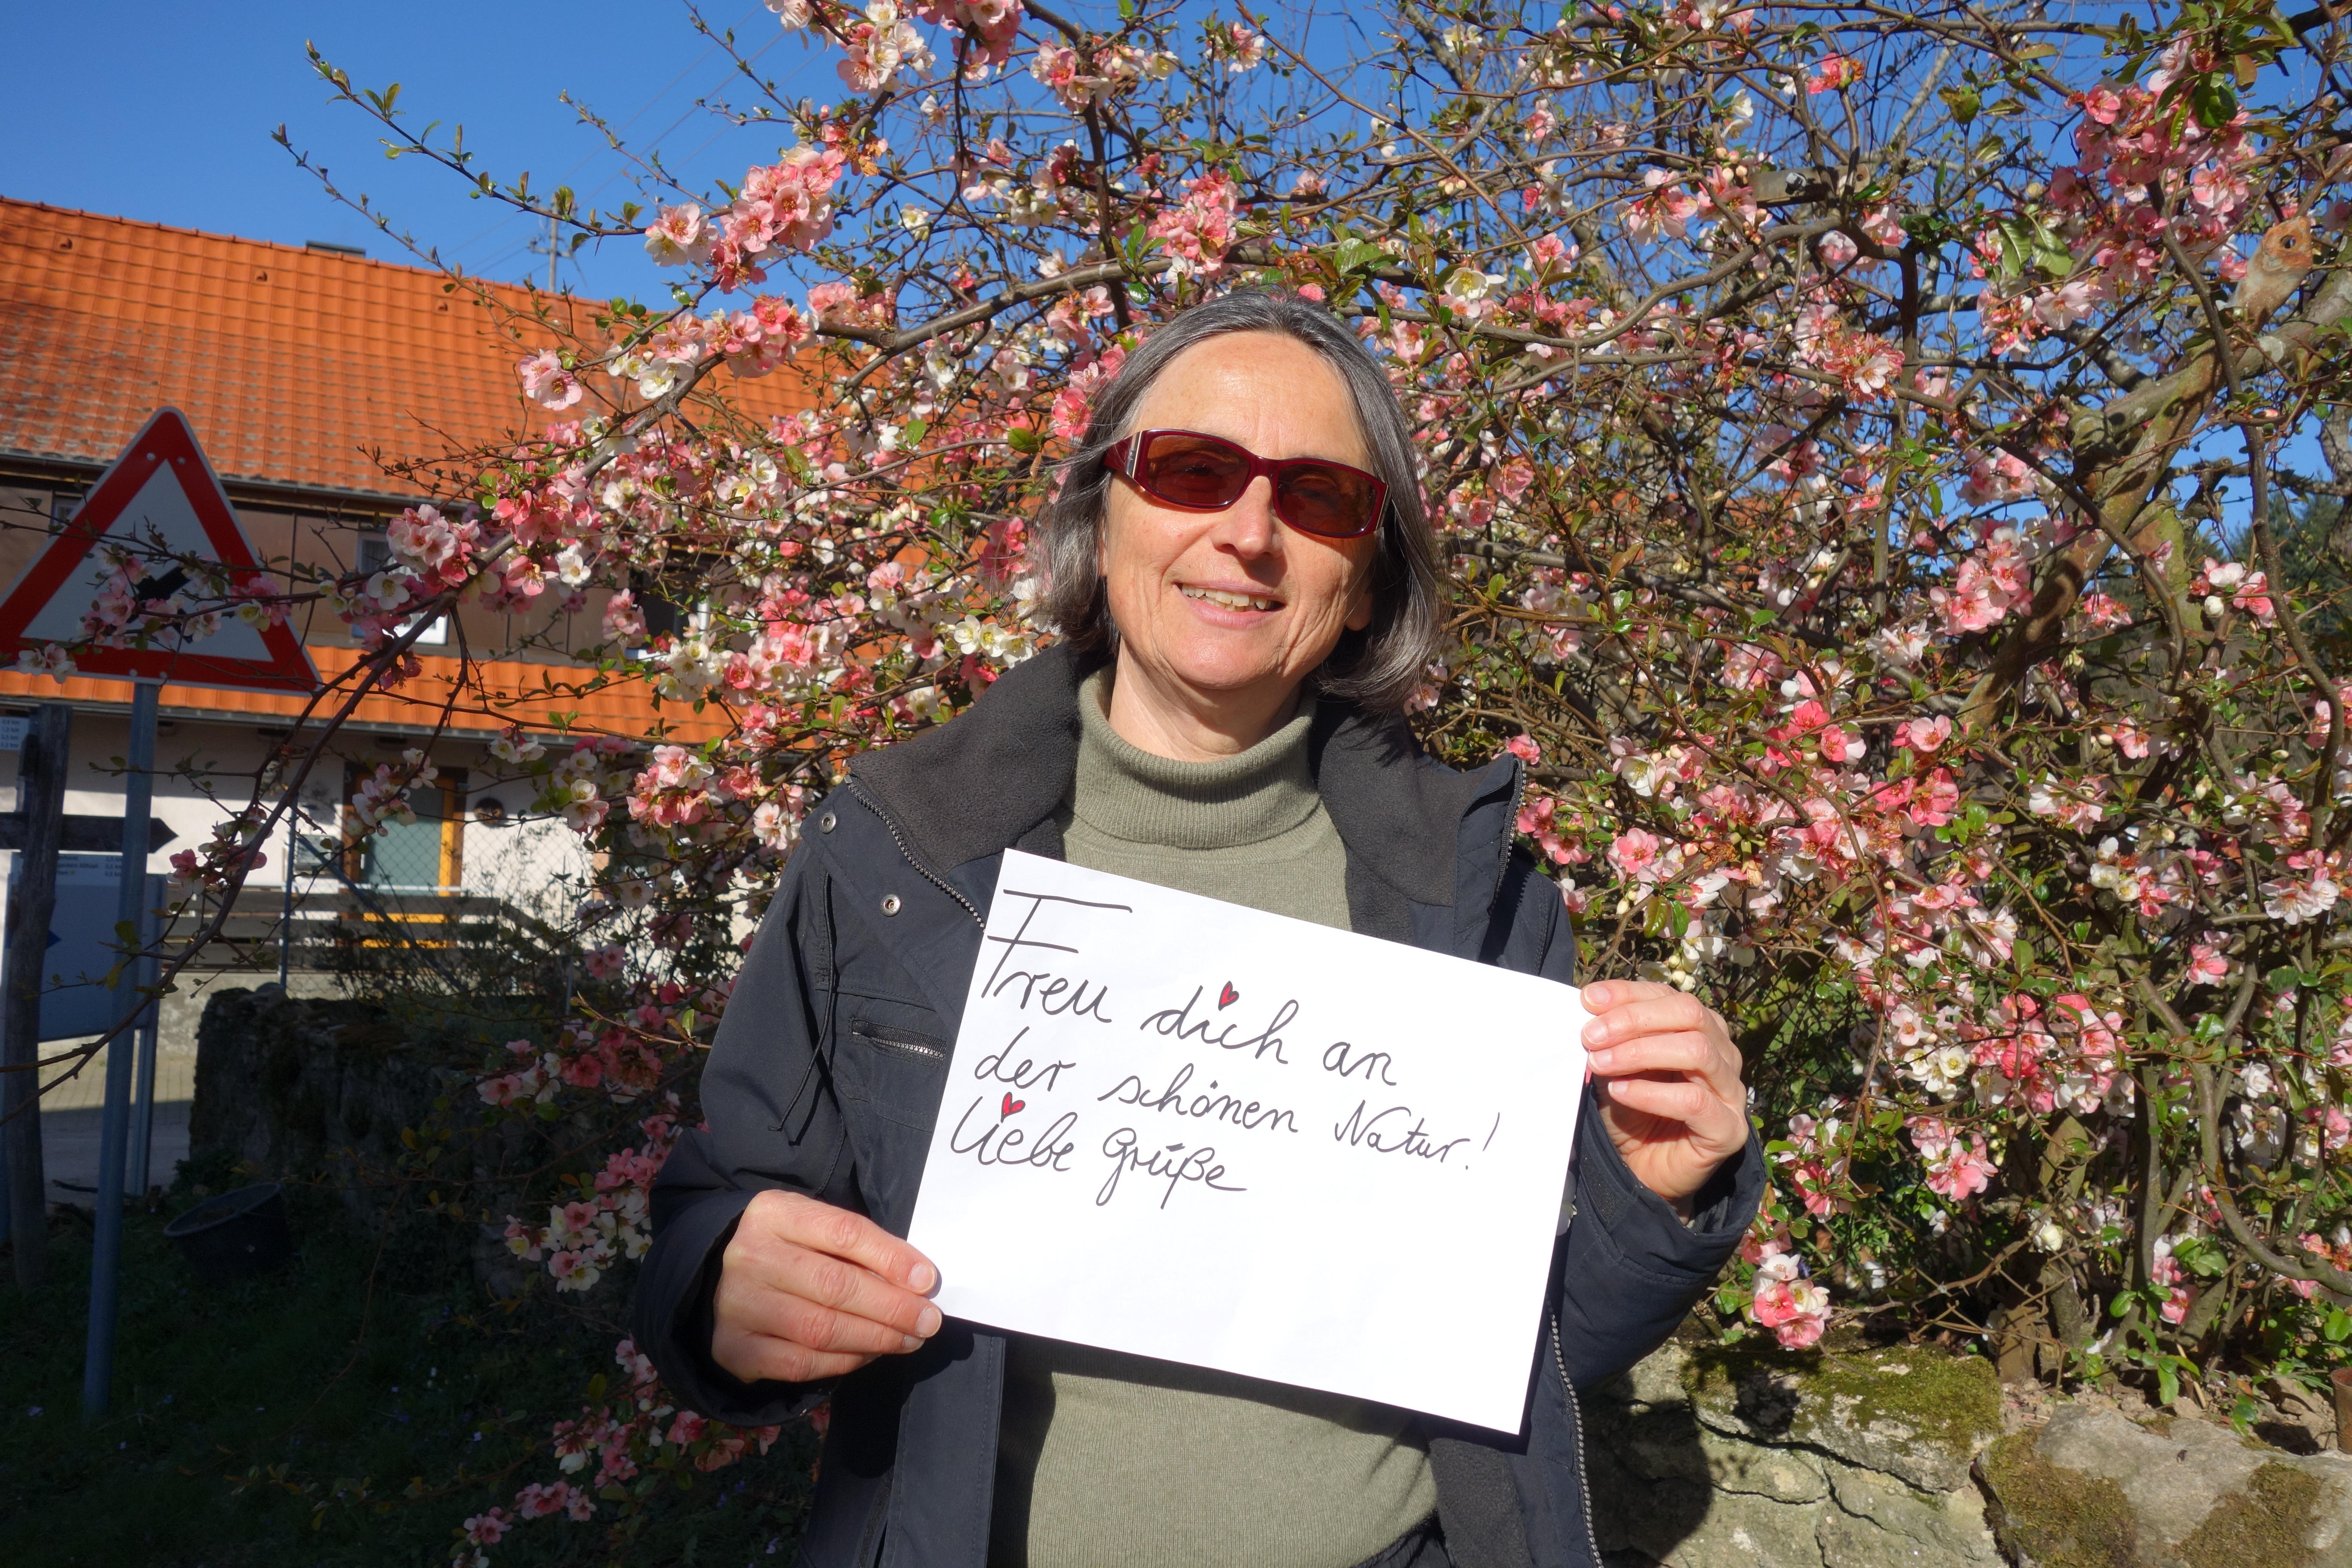 Freu dich an
der schönen Natur!
Liebe Grüße